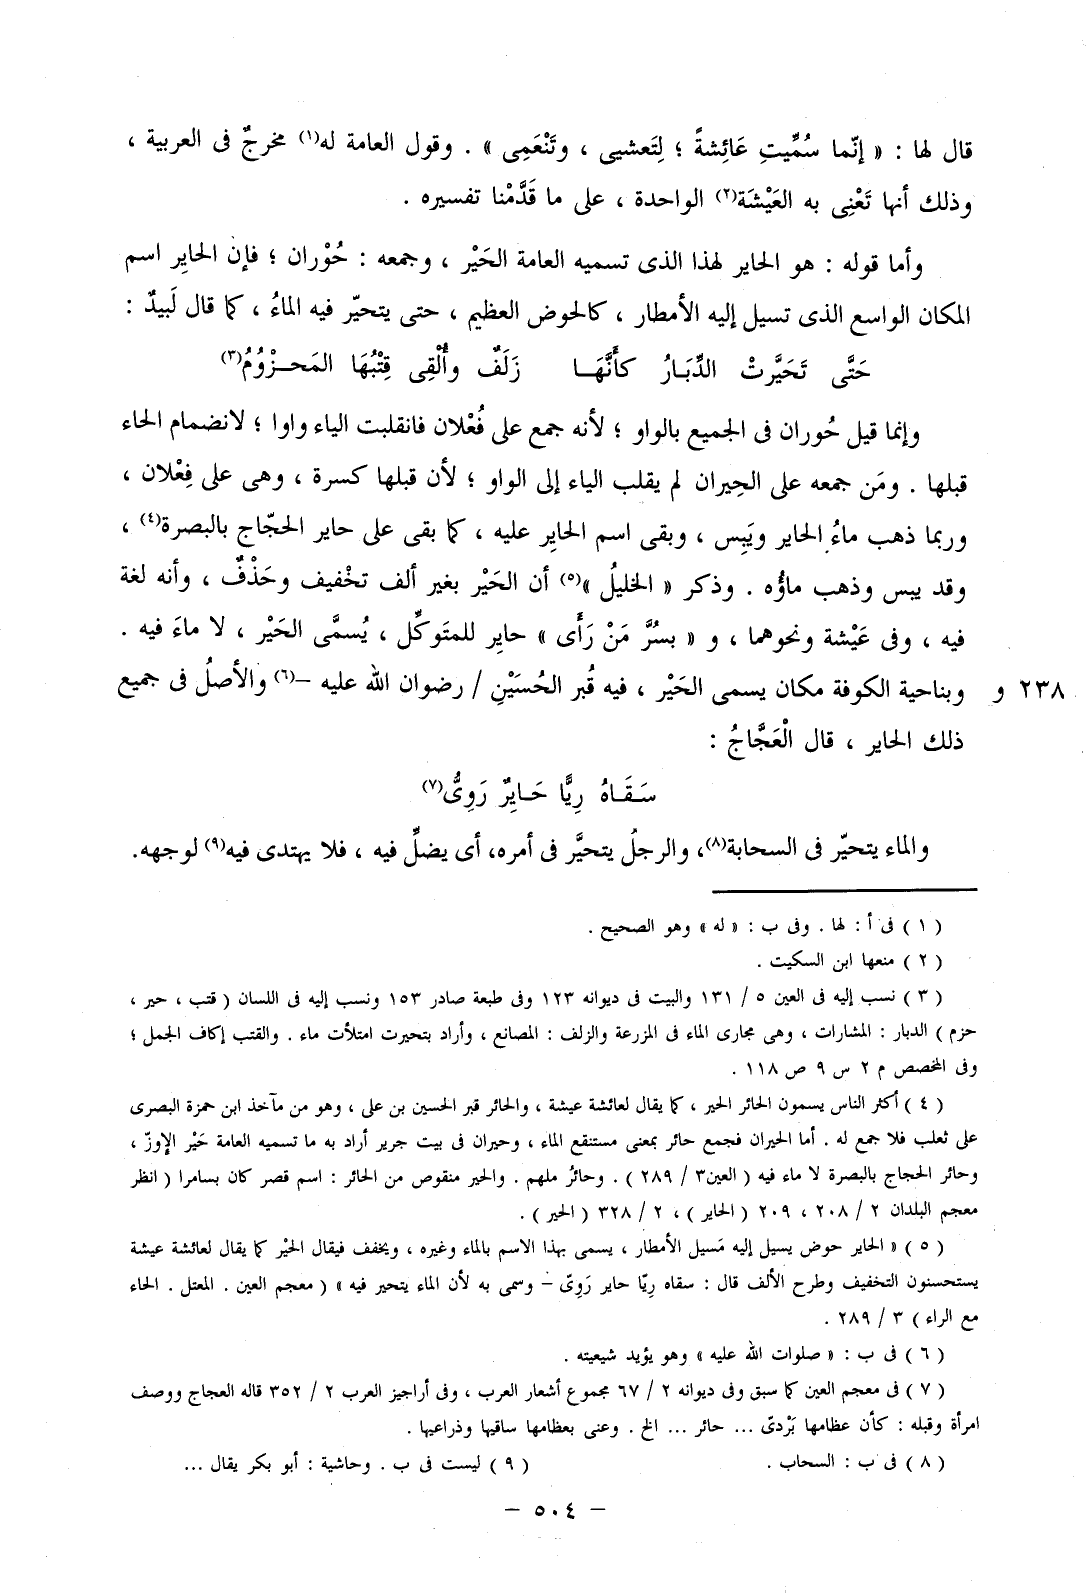 قال لها : « إنّما سُمِّيتِ عَائِشةً ؛ لِتَعشيى ، وتَنْعَمِى » . وقول العامة له(١) مخرجٌ فى العربية ،
وذلك أنها تَعْنِى به العَيْشَة(٢) الواحدة ، على ما قَدَّمْنا تفسيره .
وأما قوله : هو الحاير لهذا الذى تسميه العامة الحَيْر ، وجمعه : حُوْران ؛ فإن الحايِر اسم
المكان الواسع الذى تسيل إليه الأمطار ، كالحوض العظيم ، حتى يتحيّر فيه الماءُ ، كما قال لَبيدٌ :
حَتَّى تَحَيَّرتْ الدِّبَارُ كأَنَّهَا زَلَفٌ وأُلْقِى قِتْبُهَا المَحزْوُمُ(٣)
وإنما قيل حُوران فى الجميع بالواو ؛ لأنه جمع على فُعْلان فانقلبت الياء واوا ؛ لانضمام الحاء
قبلها . ومَن جمعه على الحِيران لم يقلب الياء إلى الواو ؛ لأن قبلها كسرة ، وهى على فِعْلان ،
وربما ذهب ماءُ الحاير ويَبِس ، وبقى اسم الحايِر عليه ، كما بقى على حاير الحجّاج بالبصرة(٤) ،
وقد يبس وذهب ماؤُه . وذكر « الخليلُ »(٥) أن الحَيْر بغير ألف تخْفيف وحَذْفٌ ، وأنه لغة
فيه ، وفى عَيْشة ونحوهما ، و « بسُرَّ مَنْ رَأَى » حاير للمتَوكِّل ، يُسمَّى الحَيْر ، لا ماءَ فيه .
وبناحية الكوفة مكان يسمى الحَيْر ، فيه قُبر الحُسَيْنِ / رضوان الله عليه –(٦) والأصلُ فى جميع ٢٣٨ و
ذلك الحاير ، قال الْعَجَّاجُ :
سَقَاهُ رِيًّا حَايِرٌ رَوِىُّ(٧)
والماء يتحيّر فى السحابة(٨)، والرجلُ يتحيَّر فى أمره، أى يضلِّ فيه ، فلا يهتدى فيه(٩) لوجهه.
( ١ ) فى أ : لها . وفى ب : « له » وهو الصحيح .
( ٢ ) منعها ابن السكيت .
( ٣ ) نسب إليه فى العين ٥ / ١٣١ والبيت فى ديوانه ١٢٣ وفى طبعة صادر ١٥٣ ونسب إليه فى اللسان ( قتب ، حير ،
حزم ) الدبار : المشارات ، وهى مجارى الماء فى المزرعة والزلف : المصانع ، وأراد بتحيرت امتلأت ماء . والقتب إكاف الجمل ؛
وفى المخصص م ٢ س ٩ ص ١١٨ .
( ٤ ) أكثر الناس يسمون الحائر الحير ، كما يقال لعائشة عيشة ، والحائر قبر الحسين بن على ، وهو من مآخذ ابن حمزة البصرى
على ثعلب فلا جمع له . أما الحيران فجمع حائر بمعنى مستنقع الماء ، وحيران فى بيت جرير أراد به ما تسميه العامة حَيْر الإوزّ ،
وحائر الحجاج بالبصرة لا ماء فيه ( العين٣ / ٢٨٩ ) . وحائرُ ملهم . والحير منقوص من الحائر : اسم قصر كان بسامرا ( انظر
معجم البلدان ٢ / ٢٠٨ ، ٢٠٩ ( الحاير ) ، ٢ / ٣٢٨ ( الحير ) .
( ٥ ) « الحاير حوض يسيل إليه مَسيل الأمطار ، يسمى بهذا الاسم بالماء وغيره ، ويخفف فيقال الحيْر كما يقال لعائشة عيشة
يستحسنون التخفيف وطرح الألف قال : سقاه رِيّا حاير رَوِىّ – وسمى به لأن الماء يتحير فيه » ( معجم العين . المعتل . الحاء
مع الراء ) ٣ / ٢٨٩ .
( ٦ ) فى ب : « صلوات الله عليه » وهو يؤيد شيعيته .
( ٧ ) فى معجم العين كما سبق وفى ديوانه ٢ / ٦٧ مجموع أشعار العرب ، وفى أراجيز العرب ٢ / ٣٥٢ قاله العجاج ووصف
امرأة وقبله : كأن عظامها بَرْدىّ ... حائر ... الخ . وعنى بعظامها ساقيها وذراعيها .
( ٨ ) فى ب : السحاب . ( ٩ ) ليست فى ب . وحاشية : أبو بكر يقال ...
– ٥٠٤ –